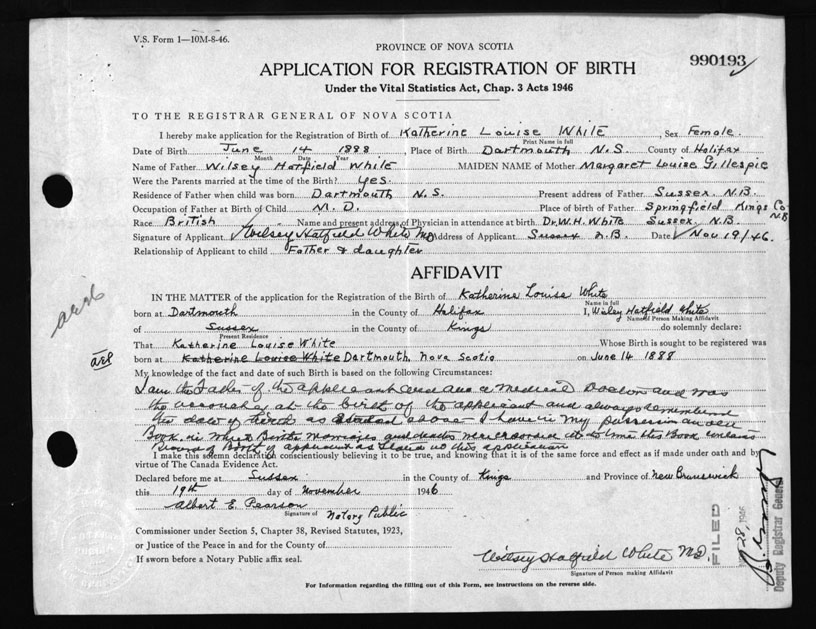 V.S. Form 1—10M-8-46.
PROVINCE OF NOVA SCOTIA
990193
APPLICATION FOR REGISTRATION OF BIRTH
Under the Vital Statistics Act, Chap. 3 Acts 1946
TO THE REGISTRAR GENERAL OF NOVA SCOTIA
I hereby make application for the Registration of Birth of Katherine Louise White, Sex Female.
Print Name in full
Date of Birth June 14 1888, Place of Birth Dartmouth N.S. County of Halifax
Month Date Year
Name of Father Wilsey Hatfield White MAIDEN NAME of Mother Margaret Louise Gillespie
Were the Parents married at the time of the Birth? Yes.
Residence of Father when child was born Dartmouth N.S. Present address of Father Sussex. N.B.
Occupation of Father at Birth of Child M.D. Place of birth of Father Springfield Kings Co N.B
Race British Name and present address of Physician in attendance at birth Dr. W.H. White Sussex. N.B.
Signature of Applicant Wilsey Hatfield White MD Address of Applicant Sussex N.B. Date Nov 19/46.
Relationship of Applicant to child Father & daughter
AFFIDAVIT
IN THE MATTER of the application for the Registration of the Birth of Katherine Louise White
Name in full
born at Dartmouth in the County of Halifax I, Wisley Hatfield White
Name of Person Making Affidavit
of Sussex in the County of Kings do solemnly declare:
Present Residence
That Katherine Louise White Whose Birth is sought to be registered was
born at Katherine Louise White Dartmouth Nova Scotia on June 14 1888
My knowledge of the fact and date of such Birth is based on the following Circumstances:
I am the Father of the applicant and am a Medical Doctor and was
the at the birth of the applicant and always remember
the date of birth as stated above I have in my possession an old
Book in which Births Marriages and deaths were recorded this Book contains
record of Birth of applicant as stated in this application
I make this solemn declaration conscientiously believing it to be true, and knowing that it is of the same force and effect as if made under oath and by
virtue of The Canada Evidence Act.
Declared before me at Sussex in the County of Kings and Province of New Brunswick
this 19th day of November 1946
Albert E. Pearson
Signature of Notary Public
Commissioner under Section 5, Chapter 38, Revised Statutes, 1923,
or Justice of the Peace in and for the County of
If sworn before a Notary Public affix seal.
Wilsey Hatfield White M.D.
Signature of Person making Affidavit
For Information regarding the filling out of this Form, see instructions on the reverse side.
FILED
Deputy Registrar General